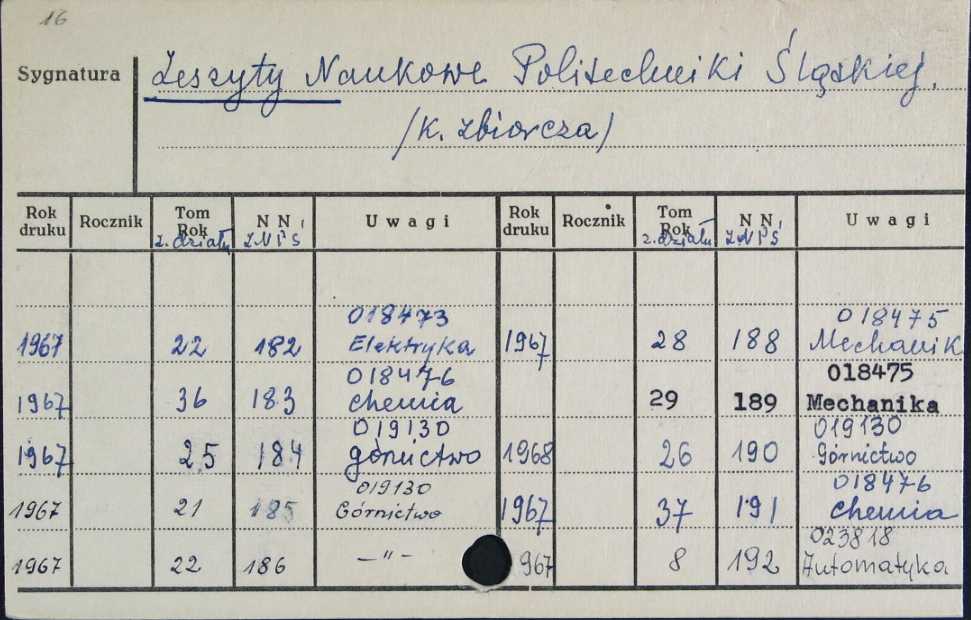 16
Sygnatura
Zeszyty Naukowe Politechniki Śląskiej.
/K. zbiorcza/
Rok druku Rocznik Tom Rok z. działu N N ZNPŚ Uwagi Rok druku Rocznik Tom Rok z. działu N N ZNPŚ Uwagi
018473 018475
1967 22 182 Elektryka 1967 28 188 Mechanik
018476 018475
1967 36 183 Chemia 29 189 Mechanika
019130 019130
1967 25 184 górnictwo 1968 26 190 Górnictwo
019130 018476
1967 21 185 Górnictwo 1967 37 191 Chemia
023818
1967 22 186 —"— 967 8 192 Automatyka